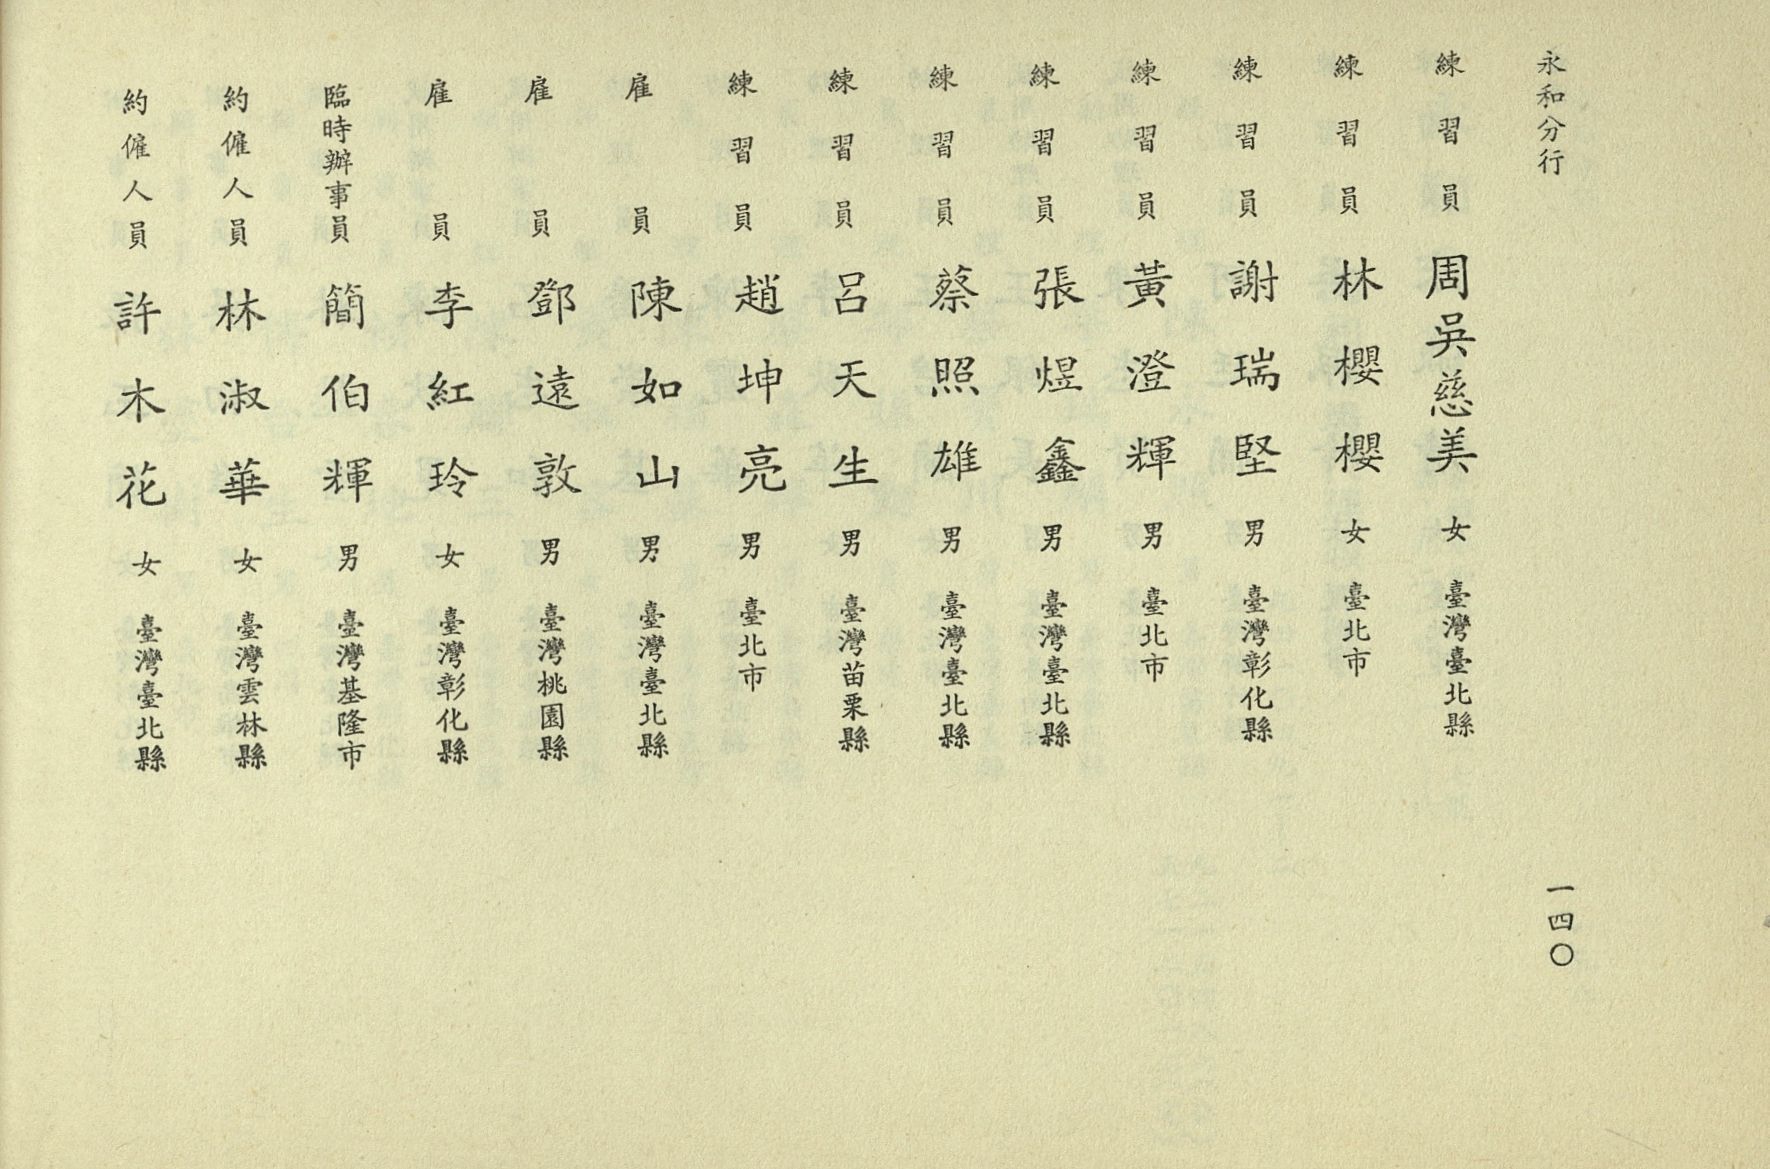 永和分行 一四〇
練習員 周吳慈美 女 臺灣臺北縣
練習員 林櫻櫻 女 臺北市
練習員 謝瑞堅 男 臺灣彰化縣
練習員 黃澄輝 男 臺北市
練習員 張煜鑫 男 臺灣臺北縣
練習員 蔡照雄 男 臺灣臺北縣
練習員 呂天生 男 臺灣苗栗縣
練習員 趙坤亮 男 臺北市
雇員 陳如山 男 臺灣臺北縣
雇員 鄧遠敦 男 臺灣桃園縣
雇員 李紅玲 女 臺灣彰化縣
臨時辦事員 簡伯輝 男 臺灣基隆市
約僱人員 林淑華 女 臺灣雲林縣
約僱人員 許木花 女 臺灣臺北縣